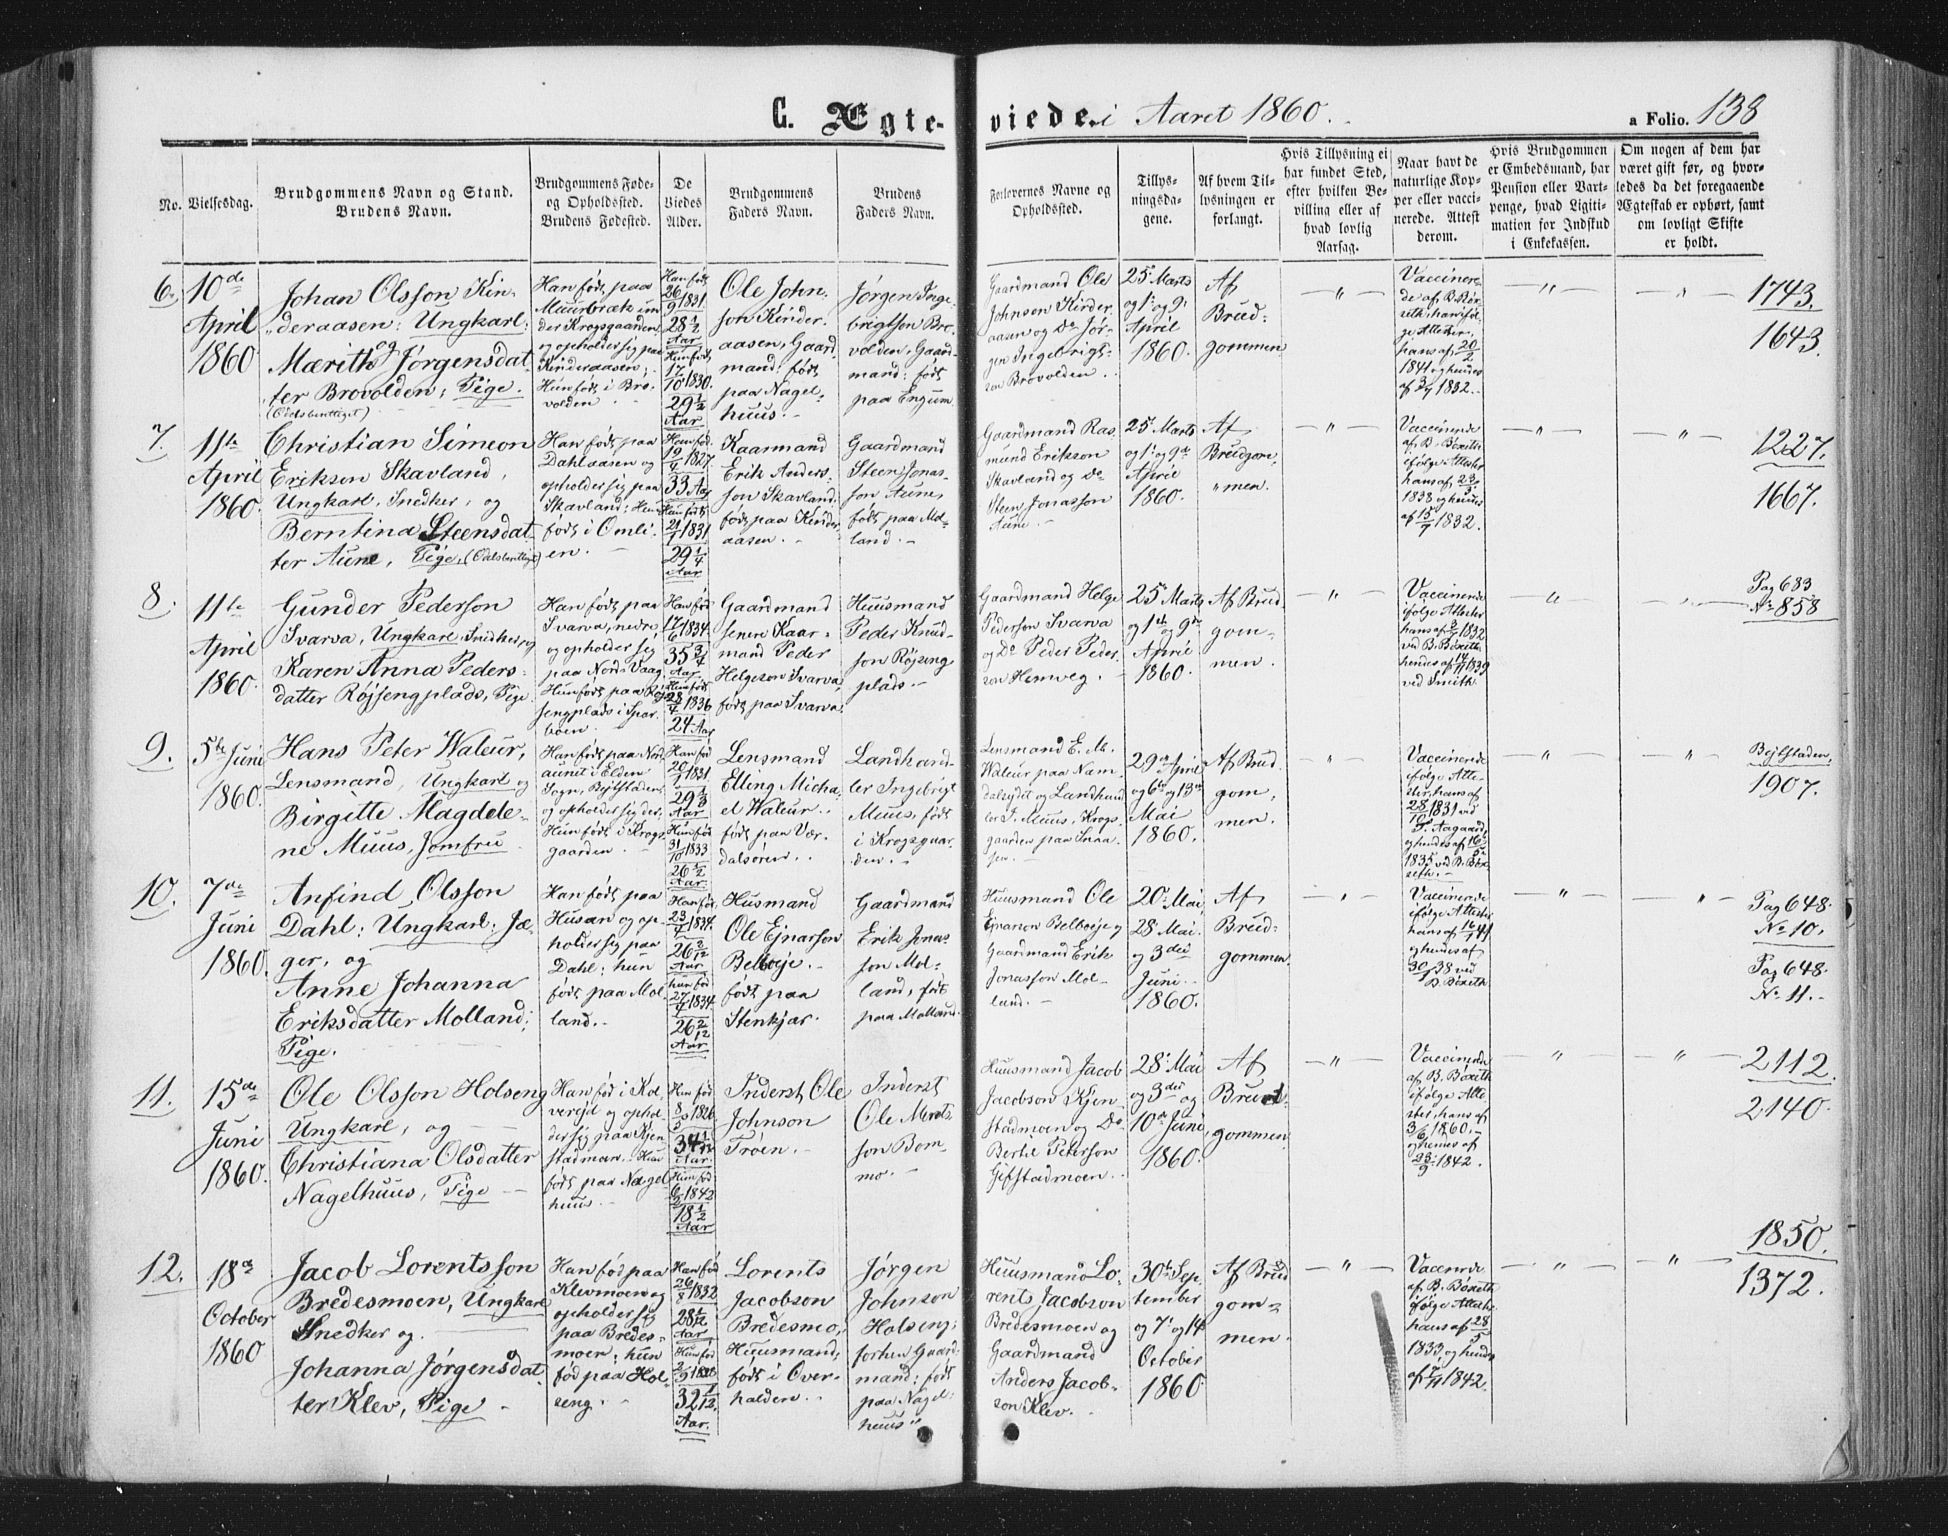 C. Ægte-
viede. i Aaret 1860.
a Folio. 138
No.
Vielsesdag.
Brudgommens Navn og Stand.
Brudens Navn.
Brudgommens Føde-
og Opholdssted.
Brudens Fødested.
De
Viedes
Alder.
Brudgommens
Faders Navn.
Brudens
Faders Navn.
Forlovernes Navne og
Opholdssted.
Tillys-
ningsda-
gene.
Af hvem Til-
lysningen er
forlangt.
Hvis Tillysning ei
har fundet Sted,
efter hvilken Be-
villing eller af
hvad lovlig
Aarsag.
Naar havt de
naturlige Kop-
per eller vacci-
nerede. Attest
derom.
Hvis Brudgommen
er Embedsmand, har
Pension eller Vart-
penge, hvad Ligiti-
mation for Indskud
i Enkekassen.
Om nogen af dem har
været gift før, og hvor-
ledes da det foregaaende
Ægteskab er ophørt, samt
om lovligt Skifte
er holdt.
6.
10de
April
1860
Johan Olsson Kin-
deraasen: Ungkarl:
og
Mærith Jørgensdat-
ter Brovolden; Pige.
(Odelsberettiget)
Han født paa
Muurbræk un-
der Krogsgaarden,
og opholder sig paa
Kinderaasen;
Hun født i Bro-
volden
Han født
26/9 1831
28 1/2
Aar
Hun født
17/10 1830.
29 1/2
Aar
Ole John-
son Kinder-
aasen, Gaard-
mand: født
paa Nagel-
huus.
Jørgen Inge-
brigtson Bro-
volden, Gaard-
mand: født
paa Engum
Gaardmand Ole
Johnson Kinder-
aasen og Do Jør-
gen Ingebrigt-
sen Brovolden
25 Marts
og 1: og 9:
April
1860.
Af
Brud-
gommen
Vaccinere-
de af B. Bøx-
eth, han iføl-
ge Attester,
hans af 20/2
1841 og hendes
af 3/7 1832.
1743.
1643.
7.
11te
April
1860.
Christian Simeon
Erikson Skavland,
Ungkarl, Snedker, og
Berntina Steensdat-
ter Aune, Pige, (Odelsberettiget)
Han født paa
Dahlaasen og
opholder sig paa
Skavland; Hun
født i Omli-
en.
Han fød.
19/4 1827.
33 Aar
Hun født
21/1 1831
29 1/4
Aar
Kaarmand
Erik Anders-
son Skavland:
født paa Kinder-
aasen.
Gaardmand
Steen Jonas-
son Aune,
født paa Mol-
land.
Gaardmand Ras-
mund Erikson
Skavland og Do
Steen Jonasson
Aune.
25 Marts
og 1: og 9de
April
1860.
Af
Brudgom-
men.
Vaccinerede
af B. Bøxeth
ifølge Attester
hans af 23/5
1838 og hendes
af 15/7 1832.
1227.
1667.
8.
11te
April
1860.
Gunder Pederson
Svarva, Ungkarl Snedker, og
Karen Anna Peders-
datter Røjsengplads, Pige
Han født paa
Svarva, nedre
og opholder sig
paa Nord-Vaag
Hun født paa Røj-
sengplads i Spar-
boen.
Han fød
17/6 1834.
35 3/4
Aar
Hun født
28/4 1836
24 Aar
Gaardmand
senere Kaar-
mand Peder
Helgeson Svarva,
født paa Svarva.
Huusmand
Peder Knud-
son Røjseng-
plads.
Gaardmand Helge
Pederson Svarva
og Do Peder Peder-
son Hemveg.
25 Marts
og 1te og 9de
April
1860.
Af Brud-
gom-
men.
Vaccinerede
ifølge Attester
hans af 3/7 1832
ved B. Bøxeth
hendes af 14/11 1839
ved Smith.
Pag 683
No 858
9.
5te Juni
1860.
Hans Peter Waleur,
Lensmand, Ungkarl og
Birgitte Magdele-
ne Muus, Jomfru
Han født paa Nord-
aunet i Elden
Sogn, Bejtstaden,
og opholder sig der,
Hun født i Krogs-
gaarden.
Han fød
20/1 1831
29 1/3
Aar
Hun fød
31/10 1833
26 1/2
Aar.
Lensmand
Elling Micha-
el Waleur.
født paa Vær-
dalsøren.
Landhand-
ler Ingebrigt
Muus, født
i Krogsgaar-
den.
Lensmand E. M.
Waleur paa Nam-
dalsejdet og Landhand-
ler I. Muus, Krogs-
gaarden paa Snaa-
sen.
29de April
og 6te og 13de
Mai
1860.
Af Brud-
gom-
men.
Vaccinerede
ifølge Atte-
ster, hans af
28/10 1831 ved
T. Aagaard,
og hendes af 16/5
1835 ved B. Bøx-
eth.
Bejtstaden
1907.
10.
7de
Juni
1860.
Anfind Olsson
Dahl: Ungkarl: Jæ-
ger, og
Anne Johanna
Eriksdatter Molland;
Pige.
Han født paa
Husan og op-
holder sig paa
Dahl; hun
født paa Mol-
land.
Han fød.
23/4 1834.
26 2/12
Aar
hun fød
27/4 1834.
26 2/12
Aar
Husmand
Ole Ejnarson
Belboje.
født paa
Stenkjær.
Gaardmand
Erik Jonas-
son Mol-
land, født
paa Molland.
Huusmand Ole
Ejnarson Belboje og
Gaardmand Erik
Jonasson Mol-
land.
20: Mai,
28 Mai.
og 3die
Juni
1860.
Af
Brud-
gommen
Vaccinerede
ifølge Attester
hans af 16/7 41
og hendes af
30/1 38 ved
B. Bøxeth
Pag 648.
No 10.
Pag 648.
No 11.
11.
15de
Juni
1860.
Ole Olsson Holseng
Ungkarl, og
Christiana Olsdatter
Nagelhuus, Pige
Han fød i Kol-
verejd og ophol-
der sig paa Kjen-
stadmoen. Hun
født paa Nagel-
huus.
Han fød
8/5 1826
34 1/12
Aar.
Hun fød
6/2 1842
18 1/2
Aar
Inderst Ole
Johnson
Trøen.
Inderst
Ole Morts-
son Bom-
mo.
Huusmand Jacob
Jacobson Kjen-
stadmoen og Do
Berthe Peterson
Gifstadmoen.
28: Mai
og 3die og
10de Juni,
1860.
Af
Brud-
gommen
Vaccinerede
af B. Bøxeth
ifølge Atte-
ster, hans af
3/6 1860.
og hendes af
23/9 1842.
2112.
2140.
12.
18de
October
1860
Jacob Lorentsson
Bredesmoen, Ungkarl
Snedker og
Johanna Jørgensdat-
ter Klev, Pige
Han fød paa
Klevmoen og
opholder sig
paa Bredes-
moen; hun
fød paa Hol-
seng.
Han fød
26/8 1832
28 1/12
Aar
Hun fød
32 1/12.
Aar.
Lorents
Jacobson
Bredesmo,
Huusmand;
født i Over-
halden.
Jørgen
Johnson
Holseng;
forhen Gaard-
mand; født
paa Nagel-
huus
Huusmand Lo-
rents Jacobson
Bredesmoen og
Gaardmand
Anders Jacob-
son Klev.
30te Sep-
tember
og 7: og 14
October
1860
Af Brud
gom-
men.
Vaccinerede
af B. Bøxeth
ifølge Attester
hans af 28/5
1833 og hendes
af 7/11 1842.
1850.
1372.